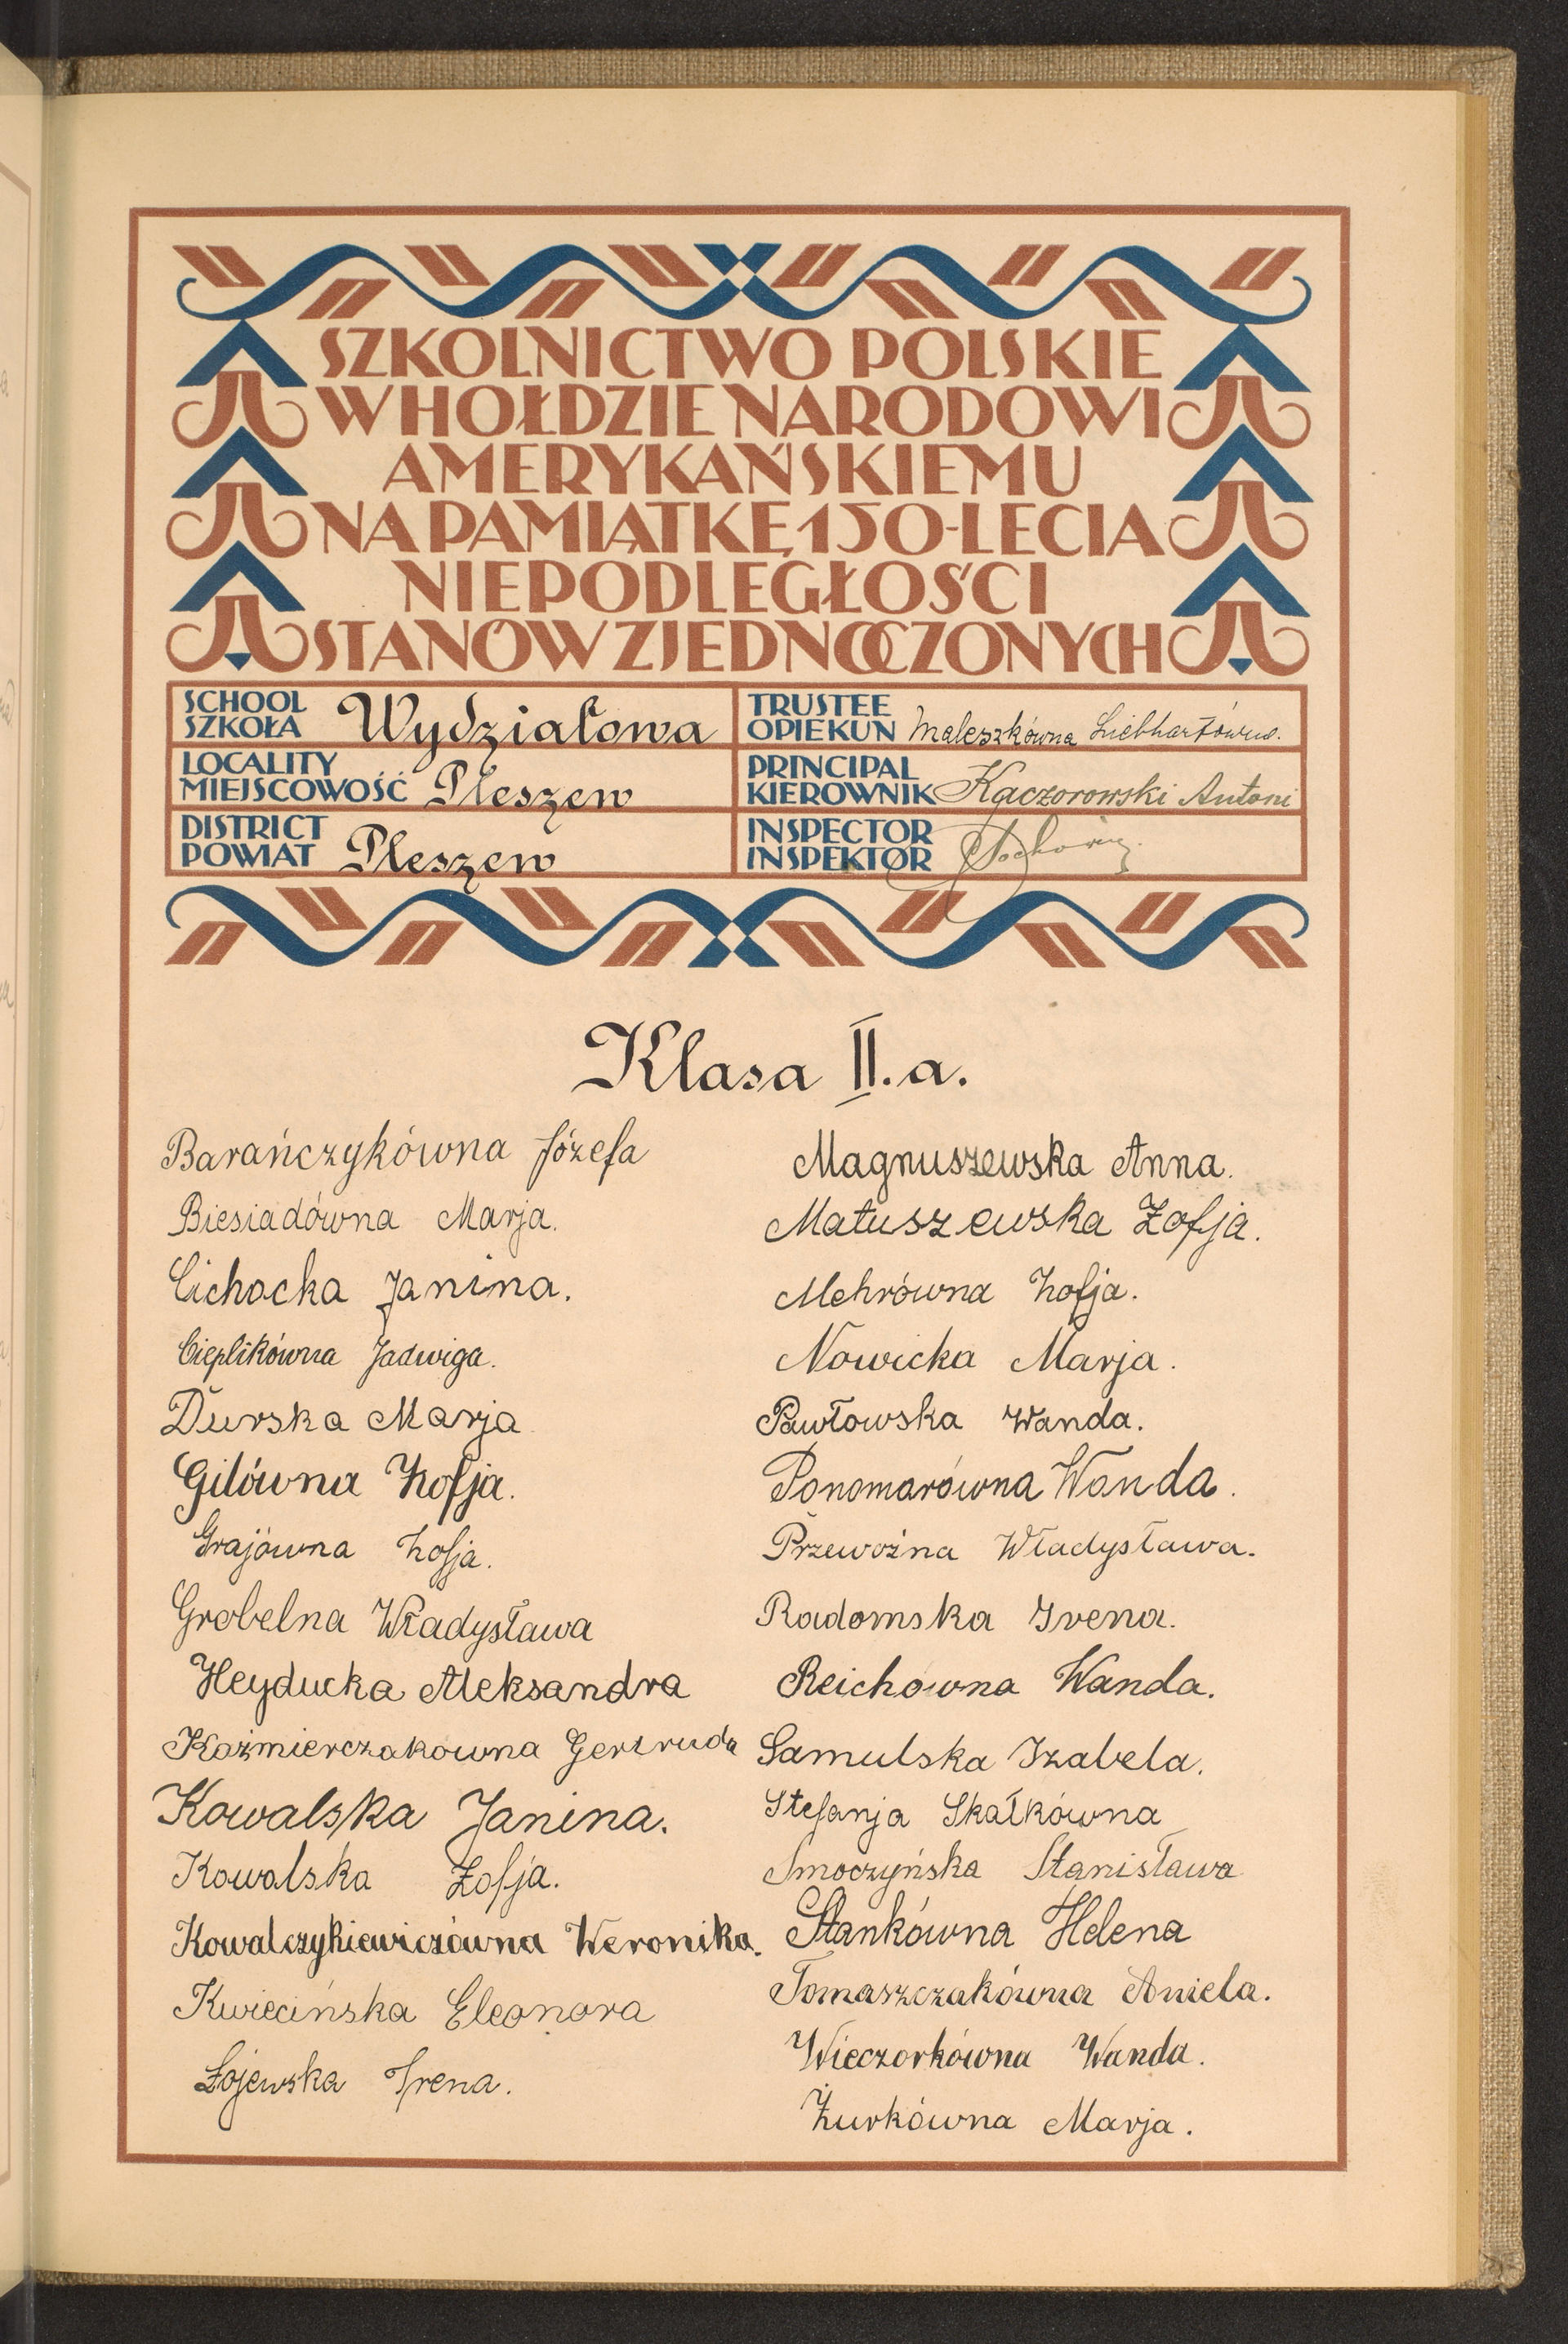 SZKOLNICTWO POLSKIE
W HOŁDZIE NARODOWI
AMERYKAŃSKIEMU
NA PAMIĄTKĘ 150-LECIA
NIEPODLEGŁOŚCI
STANÓW ZJEDNOCZONYCH
SCHOOL
SZKOŁA Wydziałowa
LOCALITY
MIEJSCOWOŚĆ Pleszew
DISTRICT
POWIAT Pleszew
TRUSTEE
OPIEKUN Maleszkówna
PRINCIPAL
KIEROWNIK Kaczorowski Antoni
INSPECTOR
INSPEKTOR
Klasa II.a.
Barańczykówna Józefa
Biesiadówna Marja.
Cichocka Janina.
Cieplikówna Jadwiga.
Durska Marja
Gilówna Zofja.
Grajówna Zofja.
Grobelna Władysława
Heyducka Aleksandra
Kaźmierczakowna Gertruda
Kowalska Janina.
Kowalska Zofja.
Kowalczykiewiczówna Weronika.
Kwiecińska Eleonora
Łojewska Irena.
Magnuszewska Anna.
Matuszewska Zofja.
Mehrówna Zofja.
Nowicka Marja.
Pawłowska Wanda.
Ponomarówna Wanda.
Przewoźna Władysława.
Radomska Irena.
Reichówna Wanda.
Samulska Izabela.
Stefanja Skałkówna
Smoczyńska Stanisława
Stankówna Helena
Tomaszczakówna Aniela.
Wieczorkówna Wanda.
Żurkówna Marja.